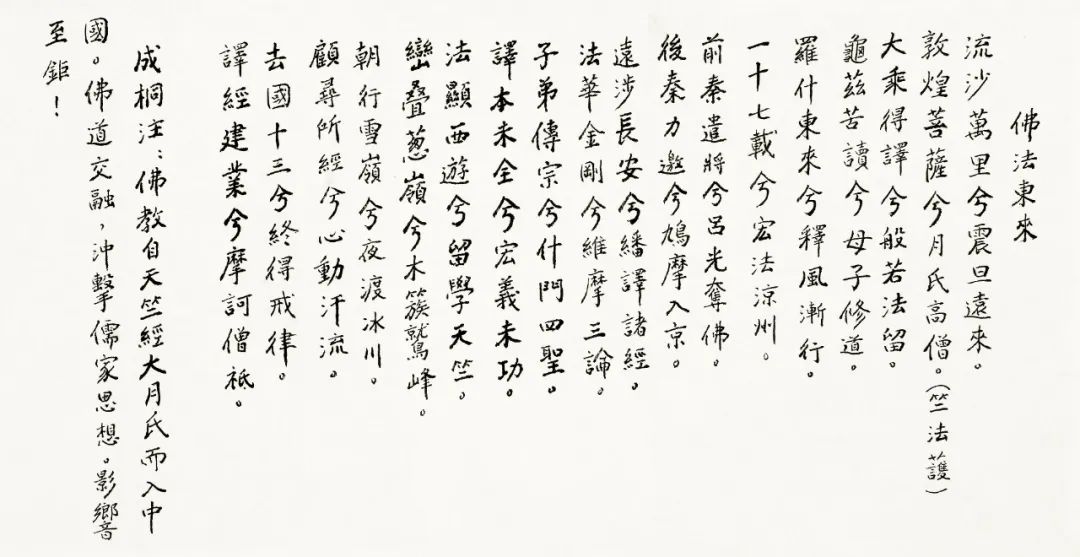 佛法東來
流沙萬里兮震旦遠來。
敦煌菩薩兮月氏高僧。(竺法護)
大乘得譯兮般若法留。
龜茲苦讀兮母子修道。
羅什東來兮釋風漸行。
一十七載兮宏法涼州。
前秦遣將兮呂光奪佛。
後秦力邀兮鳩摩入京。
遠涉長安兮繙譯諸經。
法華金剛兮維摩三論。
子弟傳宗兮什門四聖。
譯本未全兮宏義未功。
法顯西遊兮留學天竺。
巒疊葱嶺兮木簇鷲峰。
朝行雪嶺兮夜渡冰川。
顧尋所經兮心動汗流。
去國十三兮終得戒律。
譯經建業兮摩訶僧祇。
成桐注：佛教自天竺經大月氏而入中
國。佛道交融，沖擊儒家思想。影響
至鉅！